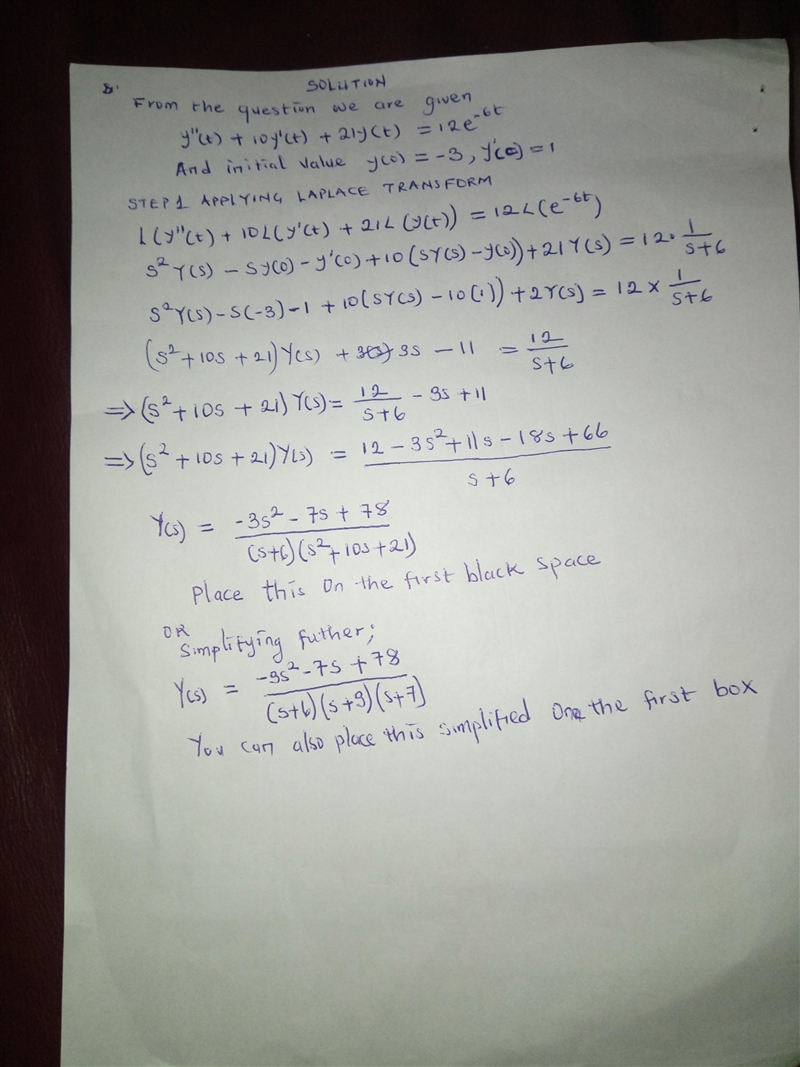 8.
SOLUTION
From the question we are given
y''(t) + 10y'(t) + 21y(t) = 12e^-6t
And initial value y(0) = -3, y'(0) = 1
STEP 1 APPLYING LAPLACE TRANSFORM
L(y''(t) + 10L(y'(t) + 21L(y(t)) = 12L(e^-6t)
s²Y(s) - sy(0) - y'(0) + 10(sY(s) - y(0)) + 21Y(s) = 12 · 1/(s+6)
s²Y(s) - s(-3) - 1 + 10(sY(s) - 10(1)) + 2Y(s) = 12 × 1/(s+6)
(s² + 10s + 21)Y(s) + 3s - 11 = 12/(s+6)
=> (s² + 10s + 21)Y(s) = 12/(s+6) - 3s + 11
=> (s² + 10s + 21)Y(s) = (12 - 3s² + 11s - 18s + 66)/(s+6)
Y(s) = (-3s² - 7s + 78)/((s+6)(s² + 10s + 21))
Place this on the first black space
OR
Simplifying futher;
Y(s) = (-3s² - 7s + 78)/((s+6)(s+3)(s+7))
You can also place this simplified One the first box